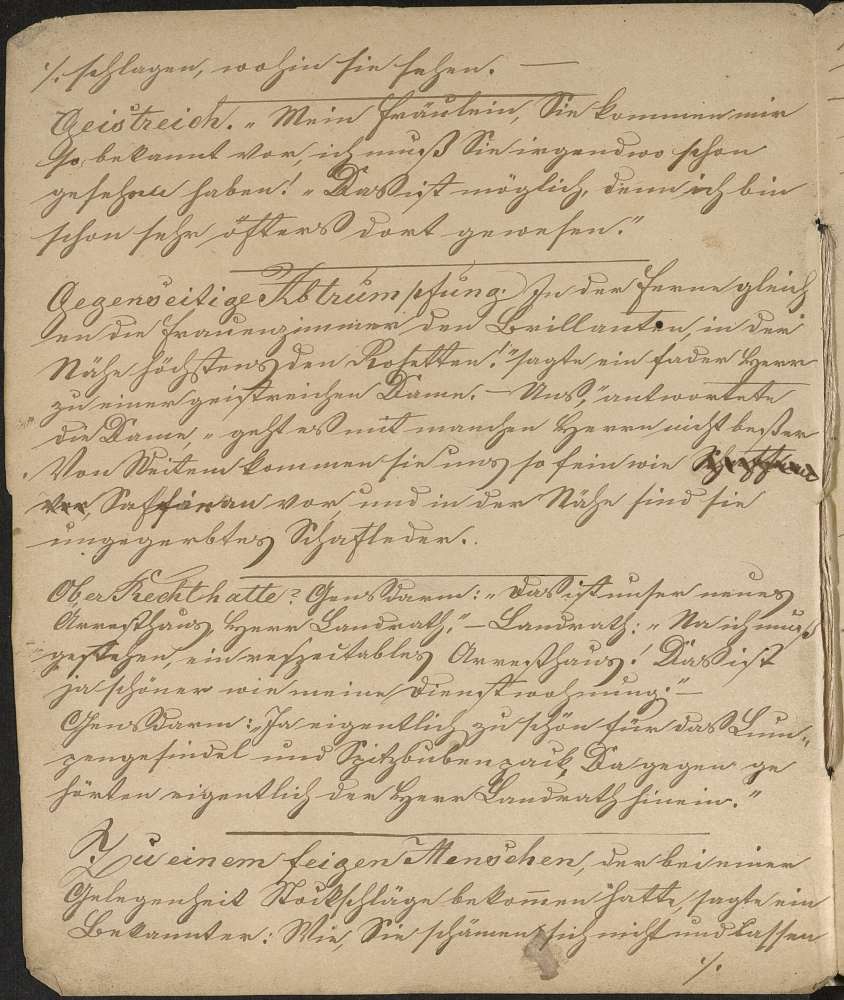 ./. schlagen, wohin sie sehen. —
Geistreich. „Mein Fräulein, Sie kommen mir
so bekannt vor, ich muß Sie irgendwo schon
gesehen haben! „Das ist möglich, denn ich bin
schon sehr öfters dort gewesen."
Gegenseitige Abtrumpfung. In der Ferne gleich
en die Frauenzimmer den Brillanten, in der
Nähe höchstens den Rosetten!" sagte ein fader Herr
zu einer geistreichen Dame. — Uns," antwortete
die Dame, „geht es mit manchen Herrn nicht beßer
Von Weitem kommen sie uns so fein wie
Saffian vor, und in der Nähe sind sie
ungegerbtes Schafleder.
Ob er Recht hatte? Gensdarm: „Das ist unser neues
Arresthaus, Herr Landrath." — Landrath: „Na ich muß
gestehen, ein respectables Arresthaus! Das ist
ja schöner wie meine Dienstwohnung." —
Gensdarm: „Ja eigentlich zu schön für das Lum-
pengesindel und Spitzbubenpack, Da gegen ge
hörten eigentlich der Herr Landrath hinein."
Zu einem feigen Menschen, der bei einer
Gelegenheit Stockschläge bekommen hatte, sagte ein
Bekannter: Wie, Sie schämen sich nicht und lassen
./.